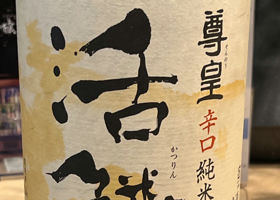 尊皇
そんのう
辛口
純米
活鱗
かつりん